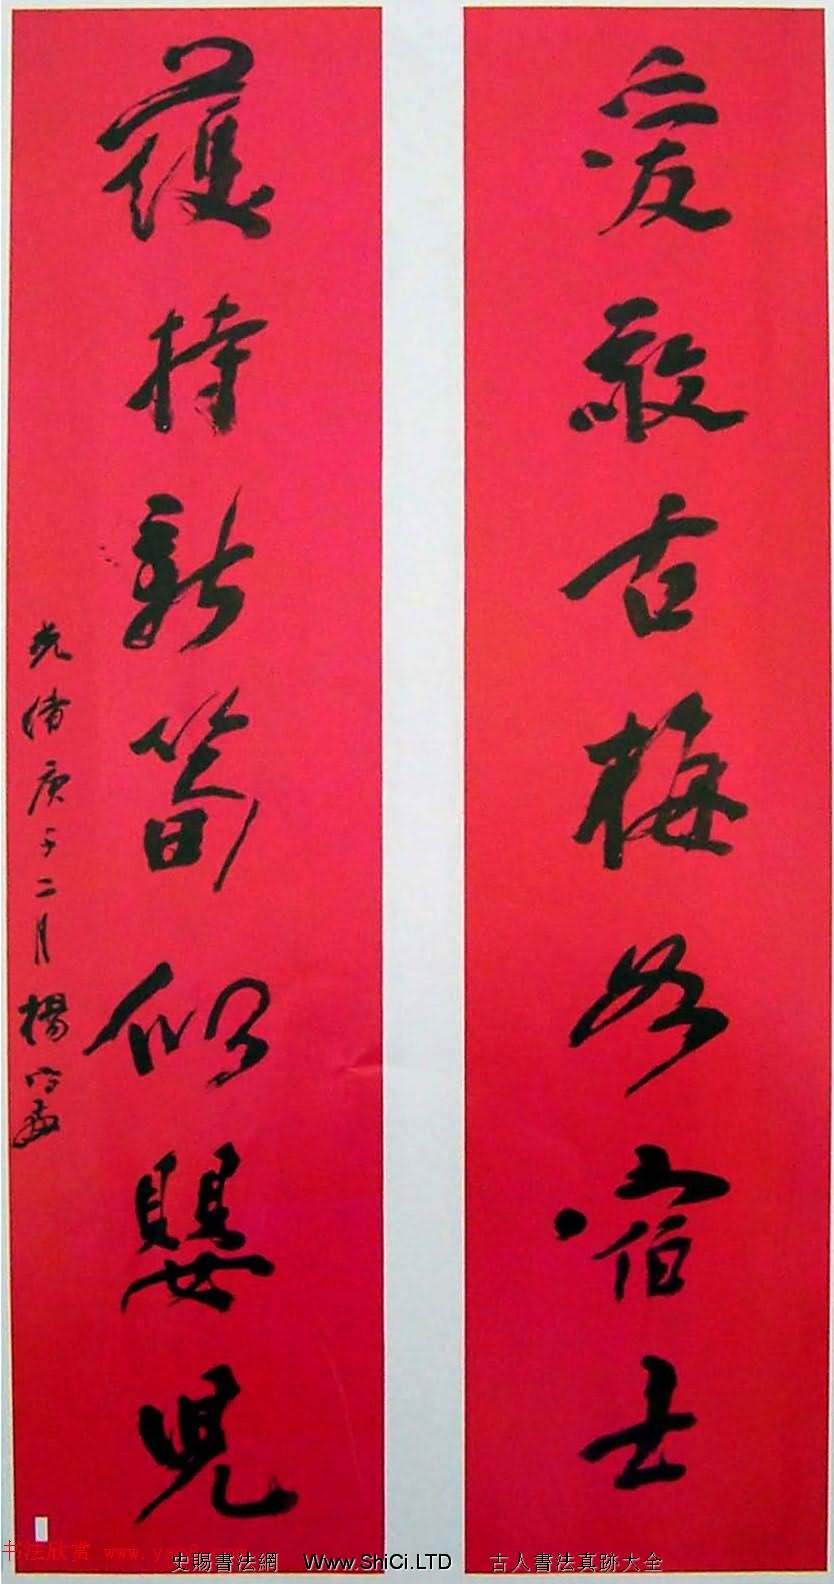 愛敬古梅如宿士
護持新筍似嬰兒
光緒庚子二月楊守敬
书法欣赏 www.y
史賜書法網 Www.ShiCi.LTD 古人書法真跡大全